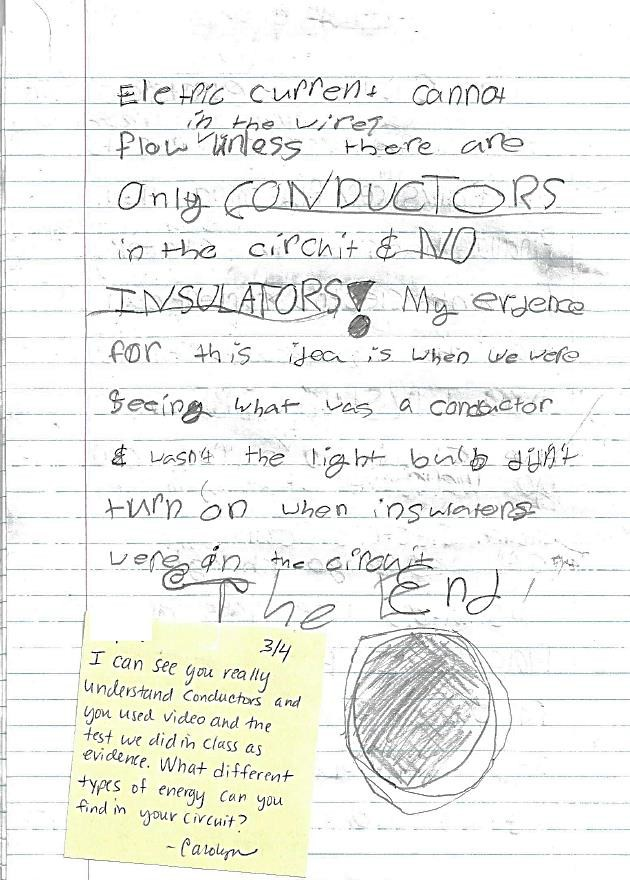 Eletric current cannot
in the wires
flow unless there are
Only CONDUCTORS
in the circuit & NO
INSULATORS! My evdence
for this idea is when we were
seeing what was a conductor
& wasn't the light bulb didn't
turn on when insulaters
were in the circuit
The End
3/4
I can see you really
understand conductors and
you used video and the
test we did in class as
evidence. What different
types of energy can you
find in your circuit?
- Carolyn